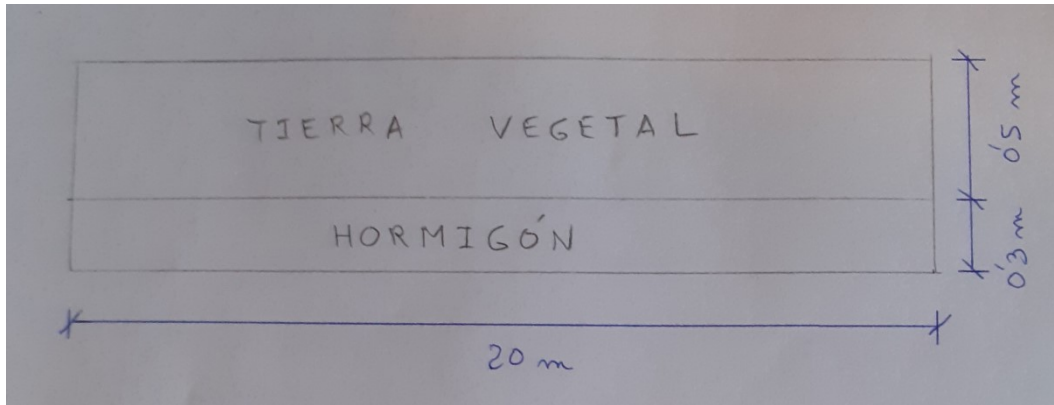 TIERRA VEGETAL
0'5 m
HORMIGÓN
0'3 m
20 m